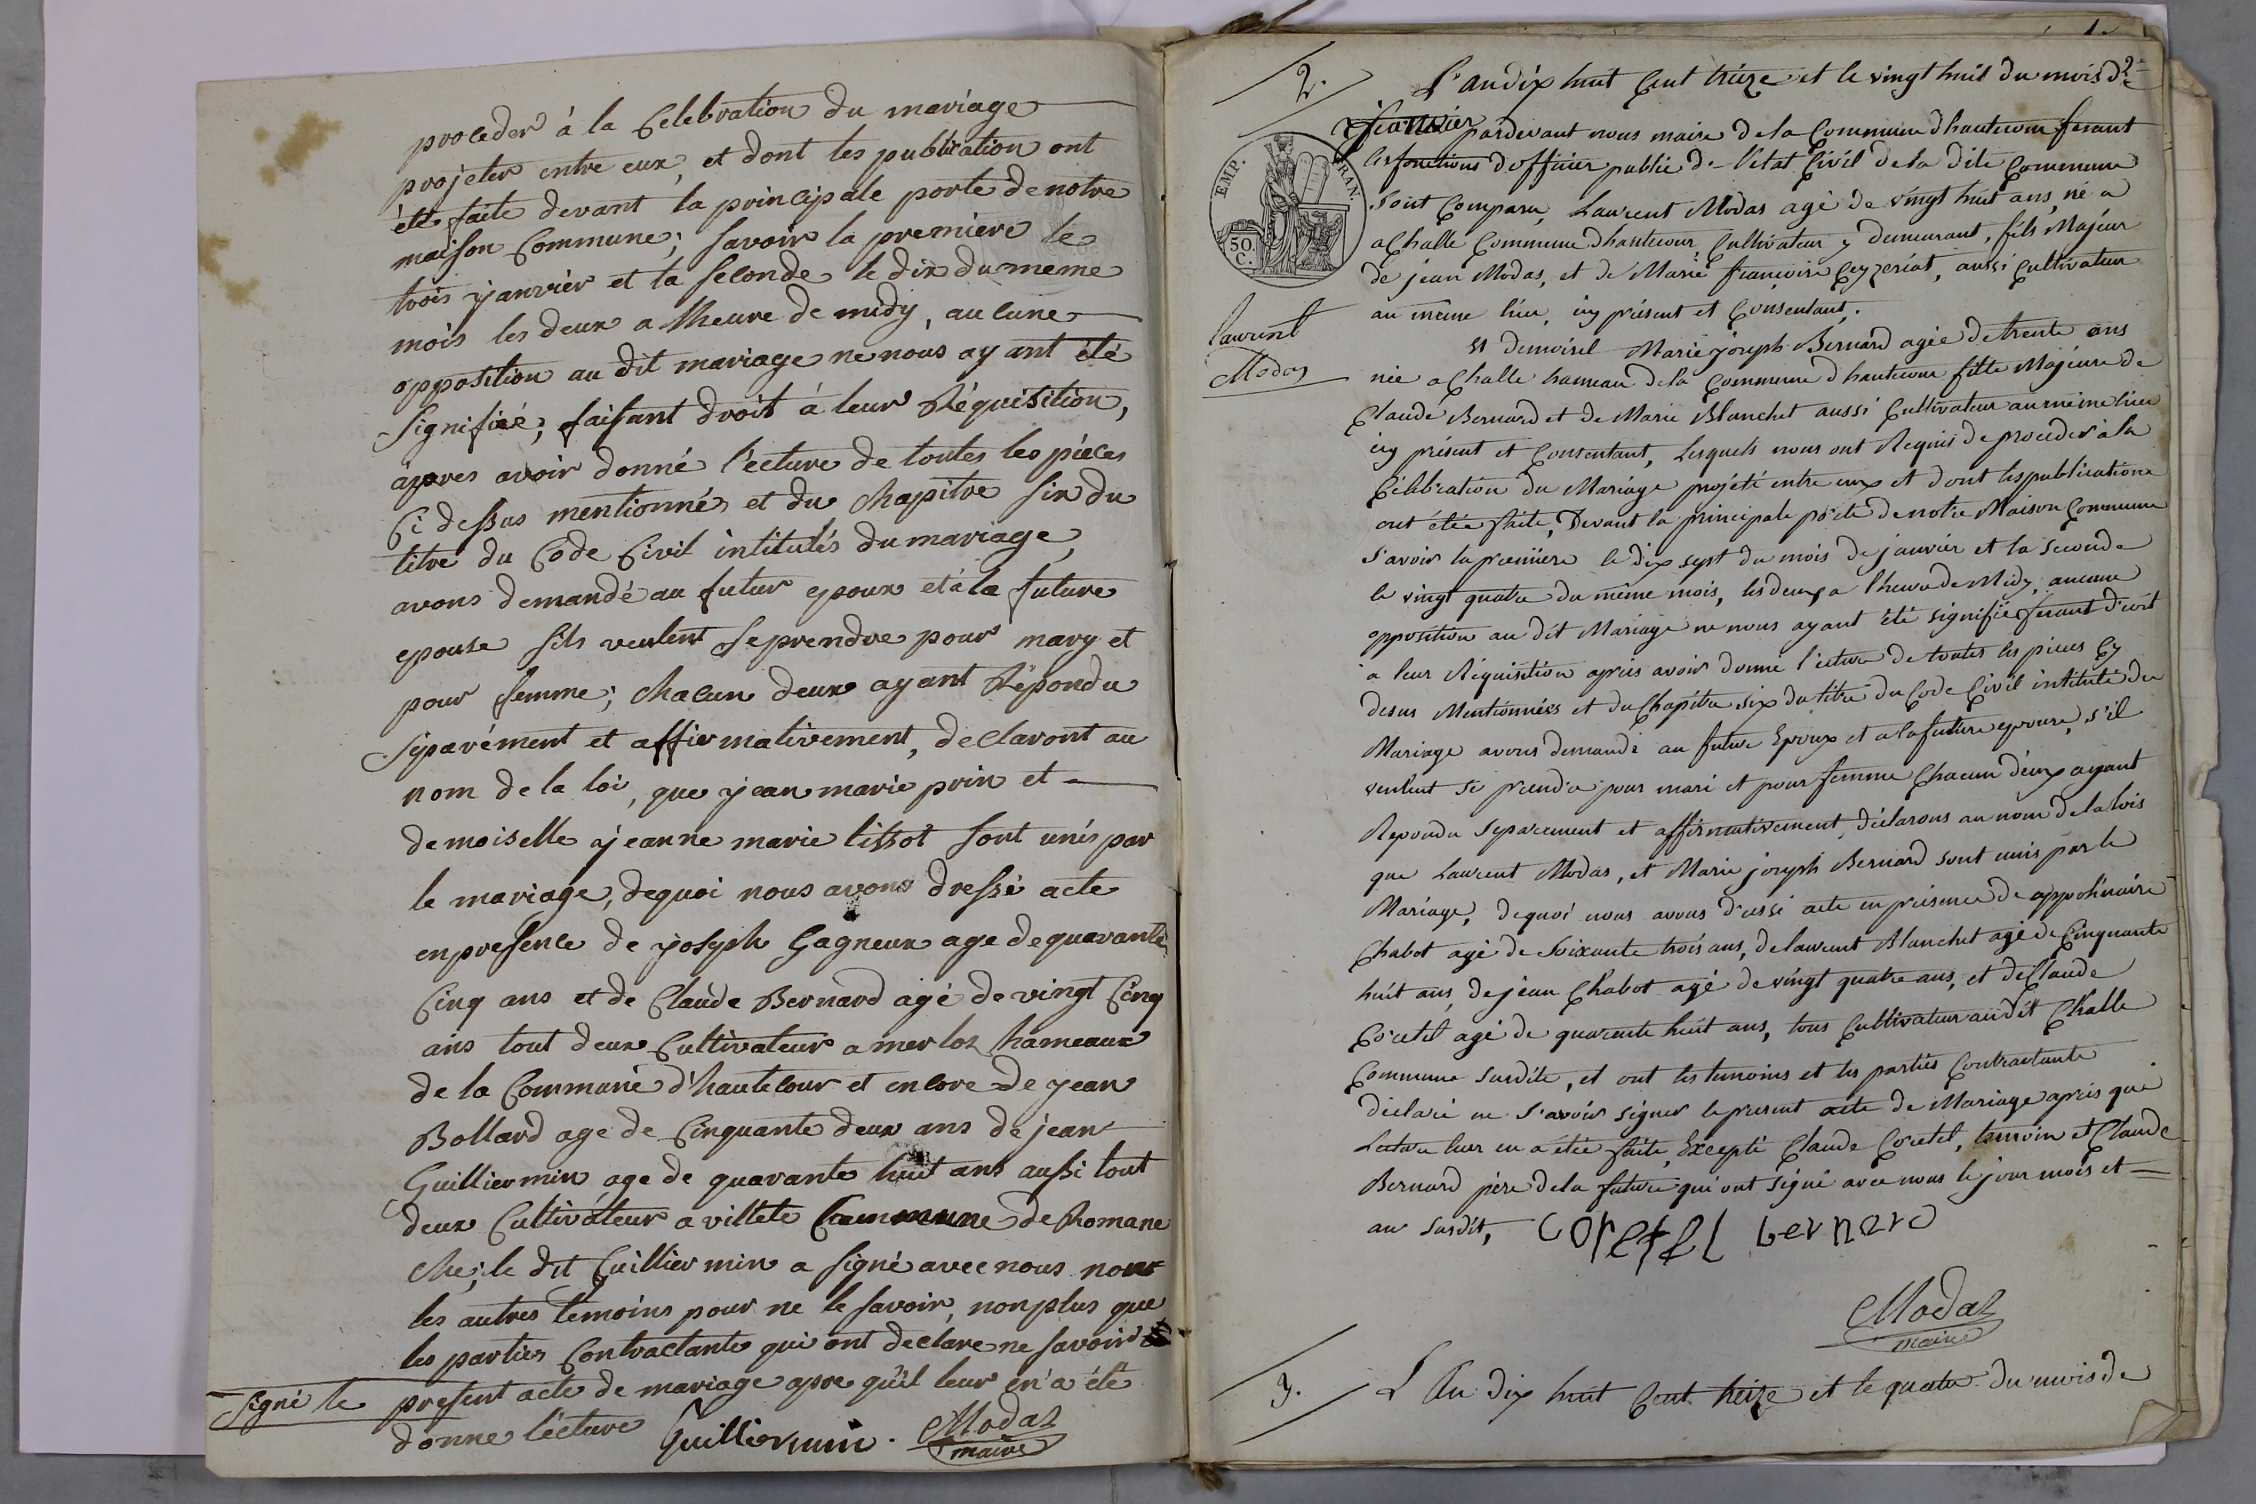 proceder à la Celebration du mariage
projeter entre eux, et dont les publication ont
été faite devant la principale porte de notre
maison Commune; savoir la premiere le
trois janvier et la seconde le dix du meme
mois les deux a lheure de midy, aucune
opposition au dit mariage ne nous ayant été
signifiée; faisant droit à leur Réquisition,
apres avoir donné l'ecture de toutes les pièces
Ci dessus mentionnés et du chapitre six du
titre du Code Civil intitulés du mariage,
avons demandé au futur epoux et à la future
epouse sils veulent se prendre pour mary et
pour femme; chacun deux ayant Répondu
séparément et affirmativement, declaront au
nom de la loi, que jean marie prin et
demoiselle jeanne marie tissot sont unis par
le mariage, dequoi nous avons dressé acte
en presence de joseph Gagneux age de quarante
Cinq ans et de Claude Bernard agé de vingt Cinq
ans tout deux Cultivateur a merloz hameaux
de la Commune d'hautecour et encore de jean
Bollard age de Cinquante deux ans de jean
Guilliermin age de quarante huit ans aussi tout
deux Cultivateur a villete Commune de Romane
che; le dit Guilliermin a signé avec nous non
les autres temoins pour ne le savoir, non plus que
les parties Contractante qui ont declare ne savoir
signé le present acte de mariage apre qu'il leur en a été
donne lecture Guilliermin. Modas
maire
2. L'an dix huit Cent treize et le vingt huit du mois de
janvier pardevant nous maire de la Commune d'hautecour fesant
les fonctions d'officier public de l'état Civil de la dite Commune
Sont Comparu, Laurent Modas agé de vingt huit ans, né a
a Challe Commune d'hautecour Cultivateur y demeurant, fils Majeur
de jean Modas, et de Marie françoise Ceyzeriat, aussi Cultivateur
au même lieu, icy présent et Consentant.
EMP. FRAN.
50.
C.
Laurent
Modas
Et demoisel Marie joseph Bernard agée de trente ans
née a Challe hameau de la Commune d'hautecour fille Majeure de
Claude Bernard et de Marie Blanchet aussi Cultivateur au même lieu
icy présent et Consentant, Lesquels nous ont Requis de proceder à la
Célébration du Mariage projété entre eux et dont les publications
ont étée faite, Devant la principale porte de notre Maison Commune
S'avoir la premiere le dix sept du mois de janvier et la seconde
le vingt quatre du même mois, les deux a l'heure de Midy, aucune
opposition au dit Mariage ne nous ayant été signifiée fesant droit
à leur Réquisition aprés avoir donné l'ecture de toutes les pieces Cy
desus Mentionnées et du Chapitre six du titre du Code Civil intitulé du
Mariage avons demandé au future Epoux et a la future epouse, s'il
veulent se prendre pour mari et pour femme Chacun d'eux ayant
Repondu séparement et affirmativement, déclarons au nom de la lois
que Laurent Modas, et Marie joseph Bernard sont unis par le
Mariage, dequoi nous avons dressé acte en présence de appolinaire
Chabot agé de Soixante trois ans, de laurent Blanchet agé de Cinquante
huit ans, de jean Chabot agé de vingt quatre ans, et de Claude
Coretel agé de quarente huit ans, tous Cultivateur au dit Challe
Commune Susdite, et ont les temoins et les parties Contractante
déclaré ne S'avoir signer le present acte de Mariage aprés que
Lecture leur en a étée faite, Excepté Claude Coretel, temoin et Claude
Bernard pére de la future qui ont signé avec nous le jour mois et
an Susdit, coretel bernard
Modas
maire
3. L'An dix huit Cent treize et le quatre du mois de